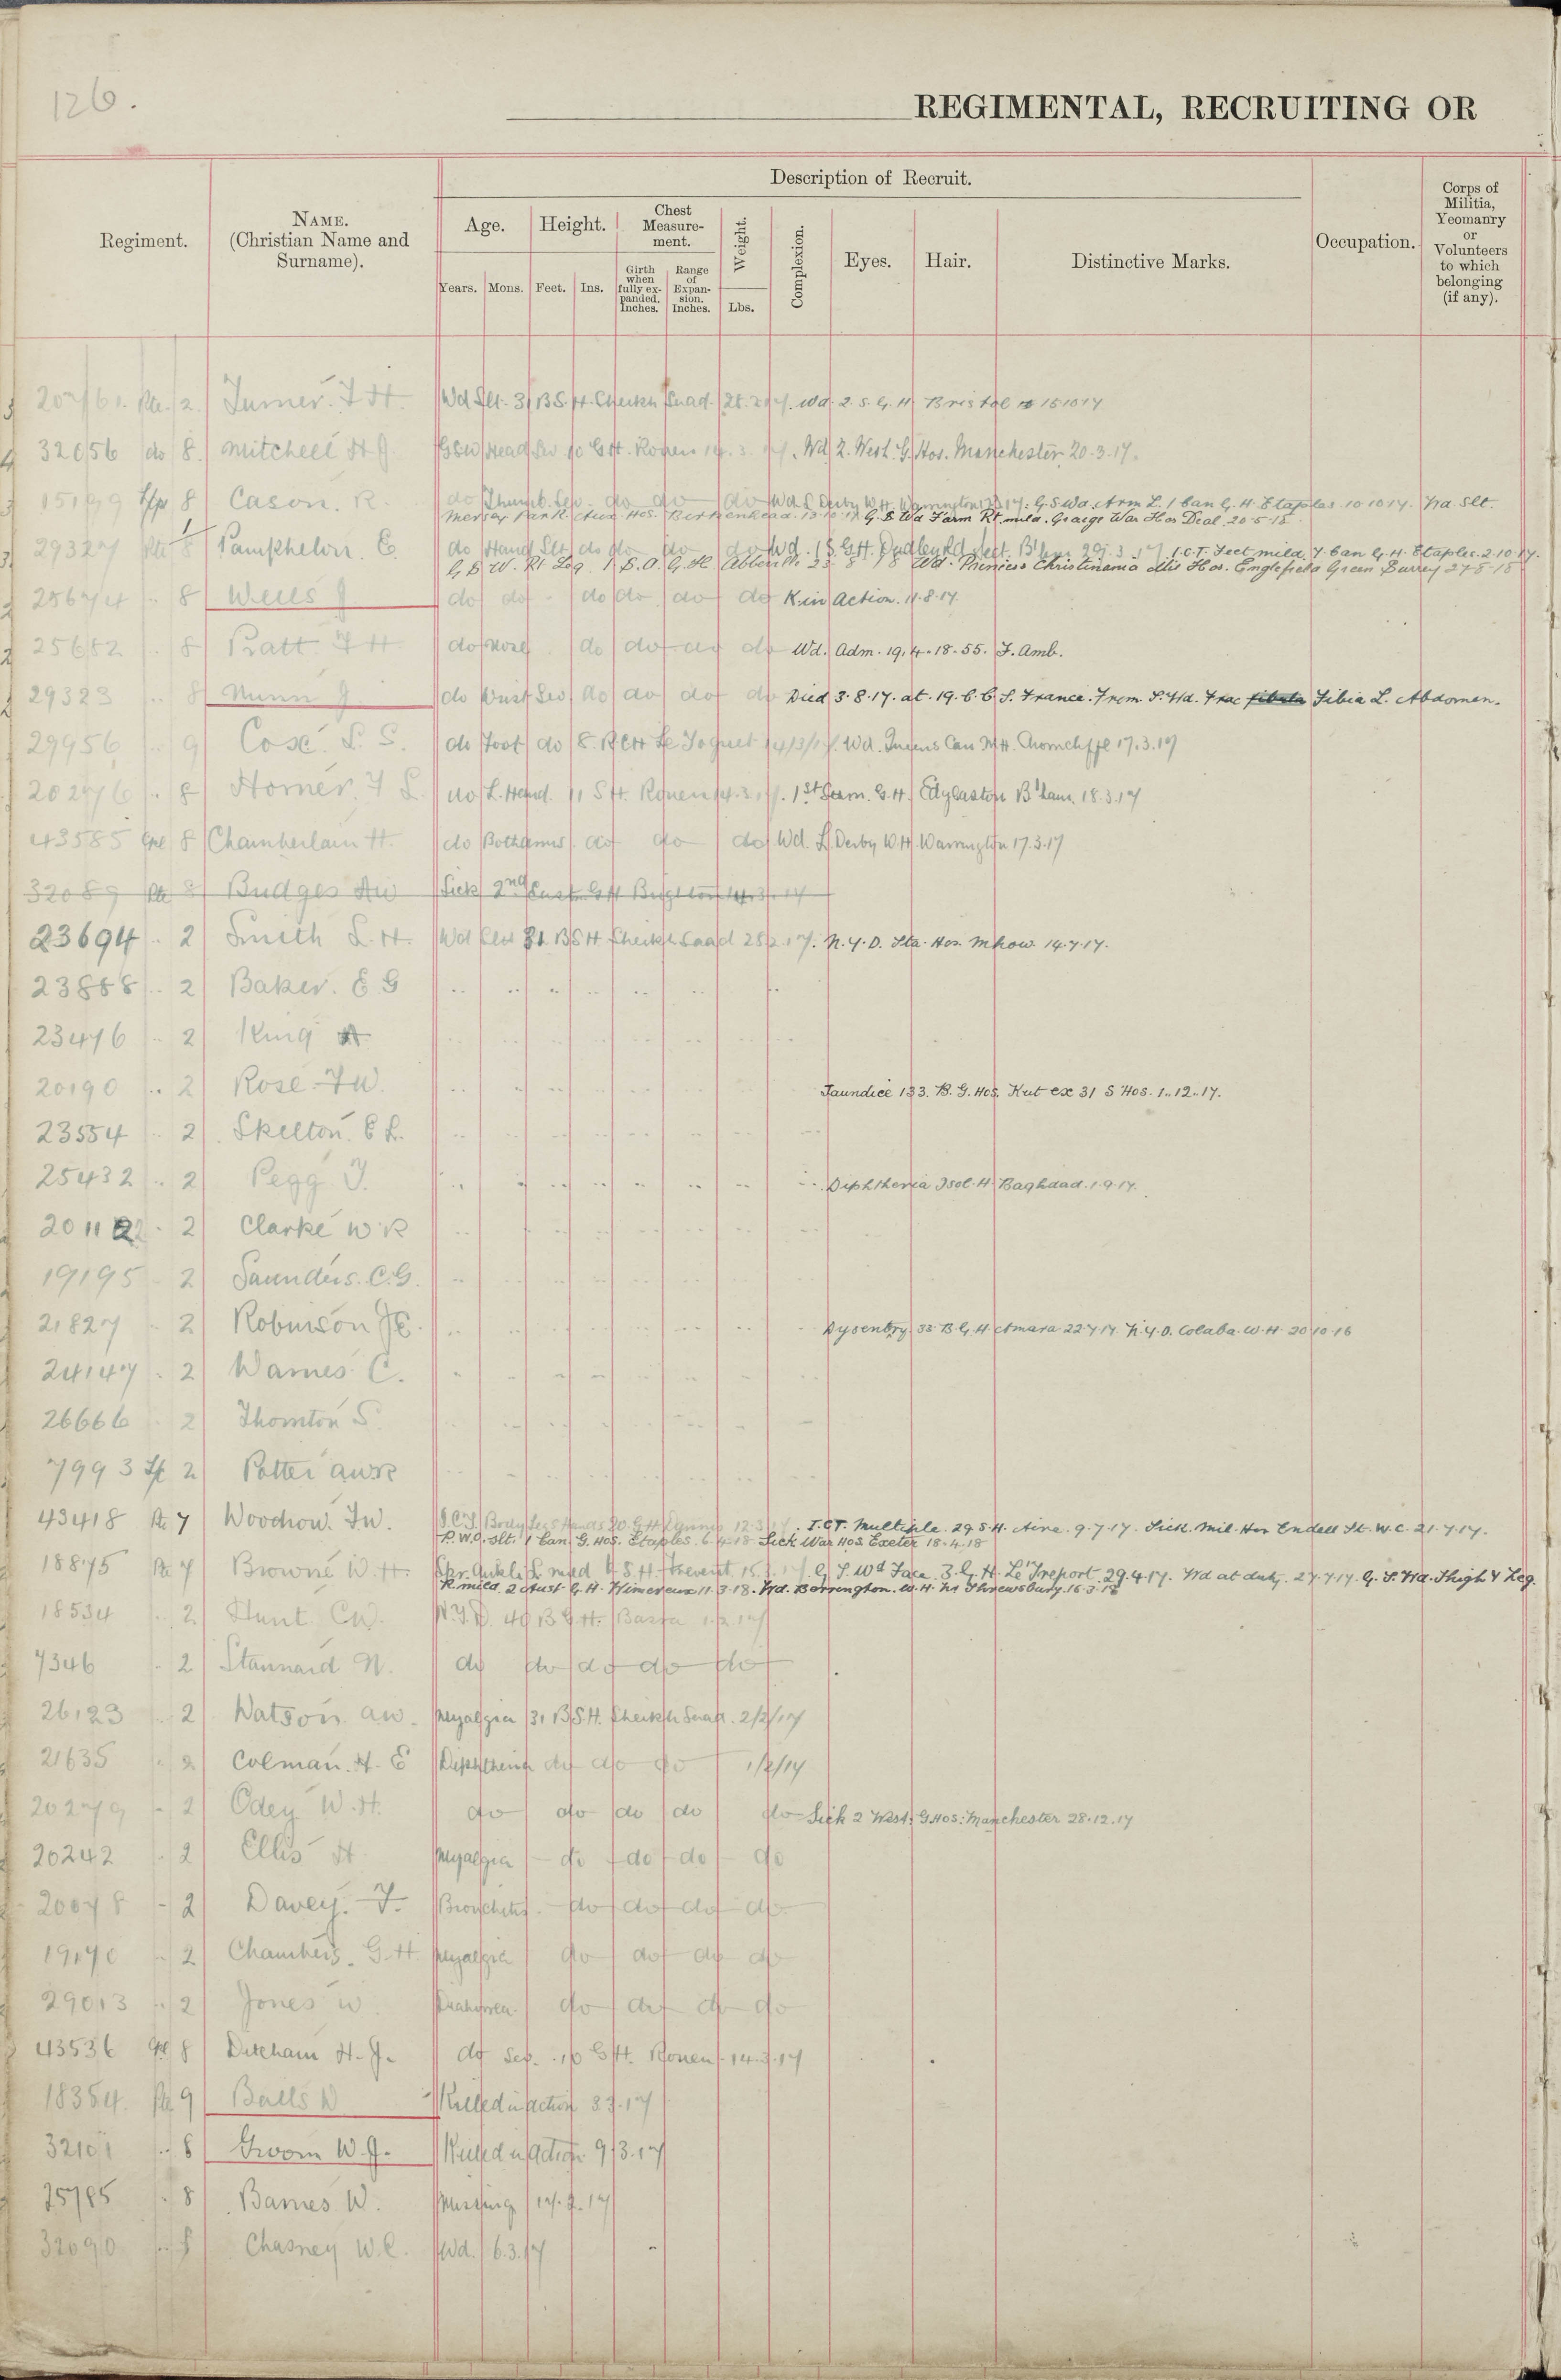 126.
REGIMENTAL, RECRUITING OR
Regiment.
NAME.
(Christian Name and
Surname).
Description of Recruit.
Age.
Years. Mons.
Height.
Feet. Ins.
Chest
Measure-
ment.
Girth
when
fully ex-
panded.
Inches.
Range
of
Expan-
sion.
Inches.
Weight.
Lbs.
Complexion.
Eyes.
Hair.
Distinctive Marks.
Occupation.
Corps of
Militia,
Yeomanry
or
Volunteers
to which
belonging
(if any).
Pte. 2 Turner. F H. Wd Slt. 31 B S. H. Cheikh Saad. Wd. 2. S. G. H. Bristol 151017
32056 do 8 Mitchell H J. GSW Head Sev 10 G H. Rouen 14. 3. 17. Wd 2. West. G. Hos. Manchester 20-3-17.
8 Cason. R do Thumb. Sev. do do do Wd L Derby W H Warrington G. S Wd. Arm L. 1 Can G. H Etaples 10 10 17. Wd. Slt.
Mersey Park Aux Hos. Birkenhead. 13-10-17 G. S Wd Farm Rt mild. Graige War Hos Deal 20-5-18
29327 Pte 8 Pamphelon. E do Hand Slt do do do do Wd. 1 S. G H. Dudley Rd Sect. B'ham 29. 3. 17 I. C. T. Feet mild. 7. Can G. H. Etaples. 2. 10 17.
G S W. Rt Leg. 2 S. A. G. H. Abbeville 23 8 18 Wd. Princess Christiana's Hos. Englefield Green Surrey 27-8-18
25674 8 Wells J do do do do do do K in Action. 11. 8. 17.
25682 8 Pratt. F H. do Nose do do do do Wd. Adm. 19. 4. 18. 55. F. Amb.
29323 8 Nunn J do Wrist Sev do do do do Died 3. 8. 17. at. 19. C. C. S. France. From. S. Wd. Frac Tibia L. Abdomen.
29956 9 Cose. L. S. do Foot do 14/3/17. Wd. Queens Can M. H. 17. 3. 17
202476 8 Horner. F S. do L. Hand. 11 S H. Rouen 14. 3. 17. 1st G. H. Edgbaston B'ham. 18. 3. 17
43585 Cpl 8 Chamberlain H. do Both arms do do do Wd. L Derby W. H. Warrington 17. 3. 17
32089 Pte 8 Budges AW Sick 2nd East. G H Brighton 14. 3. 17
23694 2 Smith L. H. Wd Slt 31 B S H Cheikh Saad 28. 2. 17. N. Y. D. Sta. Hos. Mhow 14. 7. 17.
23888 2 Baker. E. G
23476 2 King A
20190 2 Rose. F W. Jaundice 133. B. G. Hos. Kut ex 31 S Hos. 1. 12. 17.
23554 2 Skelton. E L.
25432 2 Pegg J. Diphtheria Isol. H. Baghdad. 1. 9. 17.
2 Clarke W R
19195 2 Saunders. C. G.
21827 2 Robinson J E. Dysentry 32 B. G. H. Amara 22 7 17 N. Y. D. Colaba. W. H. 20 10 18
24147 2 Warnes C.
26666 2 Thornton S.
7993 2 Potter AWR
43418 Pte 7 Woodrow. F. W. I. C. T. Body Legs Hands 20. G. H. 12-3-17. I. C. T. Multiple. 29. S. H. Aire. 9. 7. 17. Sick. Mil Hos Endell St. W. C. 21. 7. 17.
P. U. O. Slt. 1 Can. G. Hos. Etaples 6. 4. 18 Sick War Hos Exeter 18. 4. 18
18875 Pte 7 Browne W. H. Spr. Ankle L. mild 6 S. H. Frevent 15. 3. 17. G. S. Wd Face. 3. G. H. Le Treport. 29. 4. 17. Wd at duty. 27. 7. 17. G. S. Wd. Thigh & Leg.
R. mild. 2 Aust. G. H. Wimereux 11. 3. 18. Wd. Berrington. W. H. Nr Shrewsbury. 16. 3. 18
18534 2 Hunt CW. N. Y. D. 40 B G. H. Basra 1. 2. 17
7346 2 Stannard W. do do do do do
26123 2 Watson AW. Myalgia 31 B S. H. Cheikh Saad. 2/2/17
21635 2 Colman. H. E Diphtheria do do do 1/2/17
20279 2 Odey W. H. do do do do do Sick 2 West: G Hos: Manchester 28. 12. 17
20242 2 Ellis H Myalgia do do do do
20078 2 Davey. F. Bronchitis do do do do
2 Chambers. G. H. Myalgia do do do do
29013 2 Jones W. Diahorrea do do do do
43536 8 Ditcham H. J. do Sev. 10 G. H. Rouen 14. 3. 17
18354. Pte 9 Balls W Killed in Action
32101 8 Groom W. J. Killed in Action 9/3. 17
8 Barnes W. Missing
32090 8 Chasney W. C. Wd. 6. 3. 17